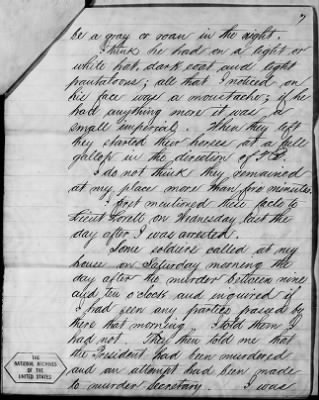 7
be a gray or roan in the night.
I think he had on a light or
white hat, dark coat and light
pantaloons; all that I noticed on
his face was a moustache; if he
had anything more it was a
small imperial. When they left
they started their horses at a full
gallop in the direction of T.B.
I do not think they remained
at my place more than five minutes.
I first mentioned these facts to
Lieut Lovett on Wednesday last the
day after I was arrested.
Some soldiers called at my
house on Saturday morning the
day after the murder between nine
and ten o'clock and inquired if
I had seen any parties passed by
there that morning. I told them I
had not. They then told me that
the President had been murdered
and an attempt had been made
to murder Secretary. I was
THE
NATIONAL ARCHIVES
OF THE
UNITED STATES